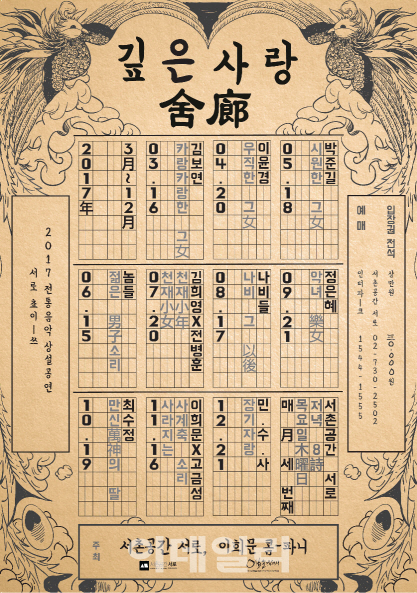 깊은사랑
舍廊
2017年
3月~12月
03.16
카랑카랑한 그女
김보연
04.20
우직한 그女
이윤경
05.18
시원한 그女
박준길
06.15
젊은 男子소리
놈들
07.20
천재小女
천재小年
김희영X전병훈
08.17
나비 그 以後
나비들
09.21
악녀 樂女
정은혜
10.19
만신萬神의 딸
최수정
11.16
사라지는
사계축 소리
이희문X고금성
12.21
장기자랑
민.수.사
매月 세번째
목요일木曜日
저녁 8詩
서촌공간 서로
2017 전통음악 상설공연
서로 초이-쓰
입장권 전석
예매
서촌공간 서로 02-730-2502
인터파-크 1544-1555
주최
서촌공간 서로, 이희문 콤파니
이데일리